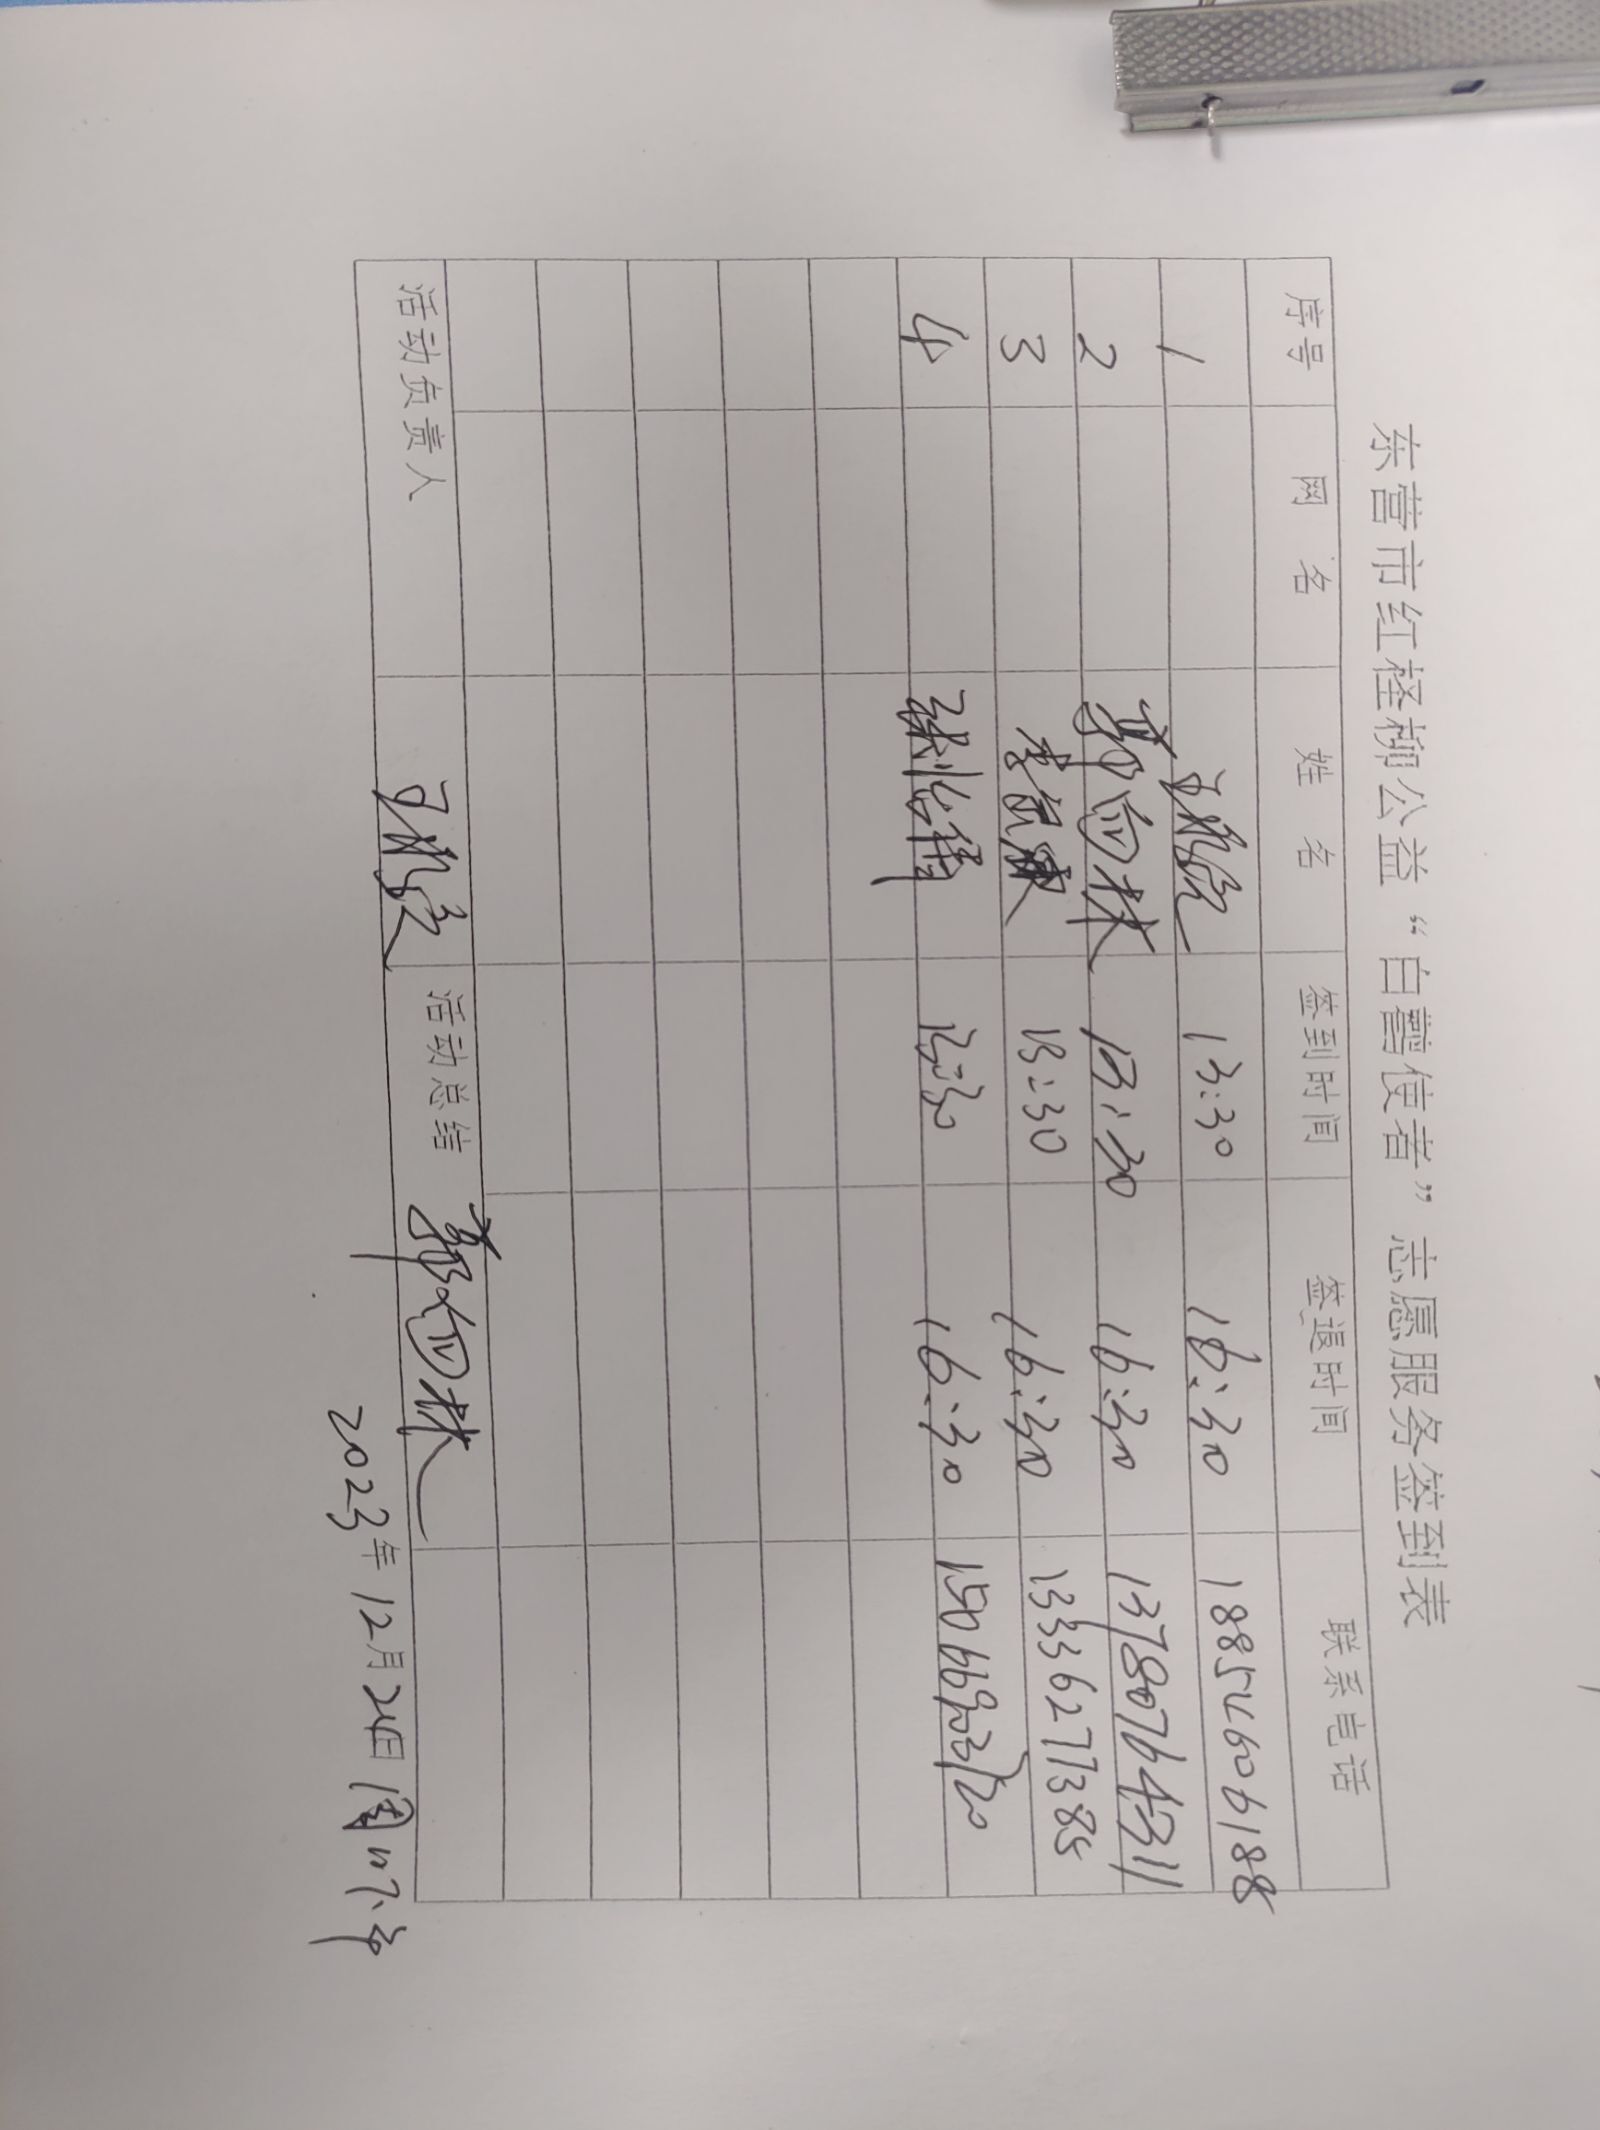 东营市红柽柳公益“白鹭使者”志愿服务签到表
序号 网 名 姓 名 签到时间 签退时间 联系电话
1 13:30 16:30 18854606188
2 13:30 16:30 13780764311
3 李 13:30 16:30 13336277385
4 张怡倩 13:30 16:30 15066903720
活动负责人 活动总结
2023年12月